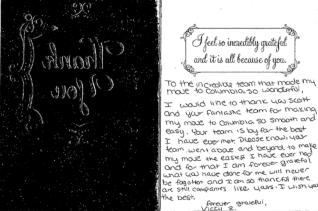 Thank
you
I feel so incredibly grateful
and it is all because of you.
To the incredible team that made my
move to Columbia so wonderful,
I would like to thank you Scott
and your fantastic team for making
my move to Columbia so smooth and
easy. Your team is by far the best
I have ever met. Please know, your
team went above and beyond to make
my move the easiest I have ever had
and for that I am forever grateful.
What you have done for me will never
be forgotten and I am so thankful there
are still companies like yours. I wish you
the best.
forever grateful,